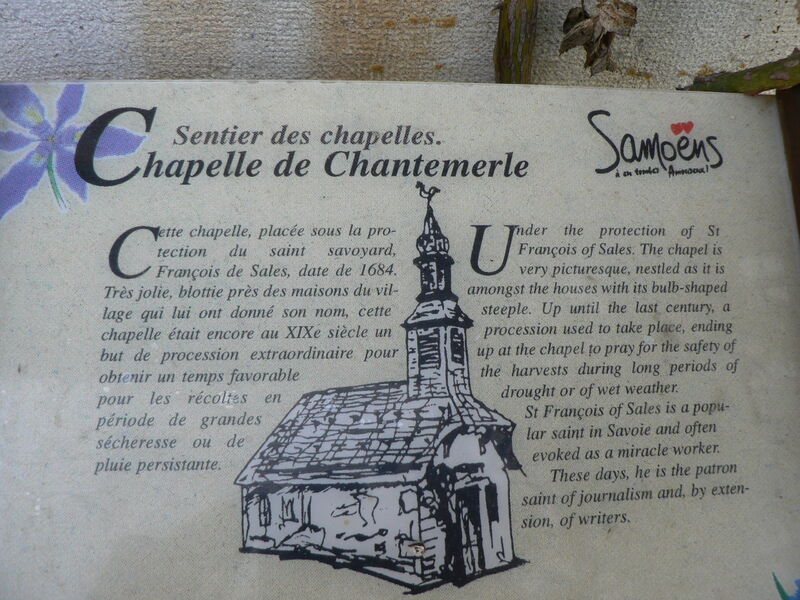 Sentier des chapelles.
Chapelle de Chantemerle
Samoëns
Cette chapelle, placée sous la pro-
tection du saint savoyard,
François de Sales, date de 1684.
Très jolie, blottie près des maisons du vil-
lage qui lui ont donné son nom, cette
chapelle était encore au XIXe siècle un
but de procession extraordinaire pour
obtenir un temps favorable
pour les récoltes en
période de grandes
sécheresse ou de
pluie persistante.
Under the protection of St
François of Sales. The chapel is
very picturesque, nestled as it is
amongst the houses with its bulb-shaped
steeple. Up until the last century, a
procession used to take place, ending
up at the chapel to pray for the safety of
the harvests during long periods of
drought or of wet weather.
St François of Sales is a popu-
lar saint in Savoie and often
evoked as a miracle worker.
These days, he is the patron
saint of journalism and, by exten-
sion, of writers.